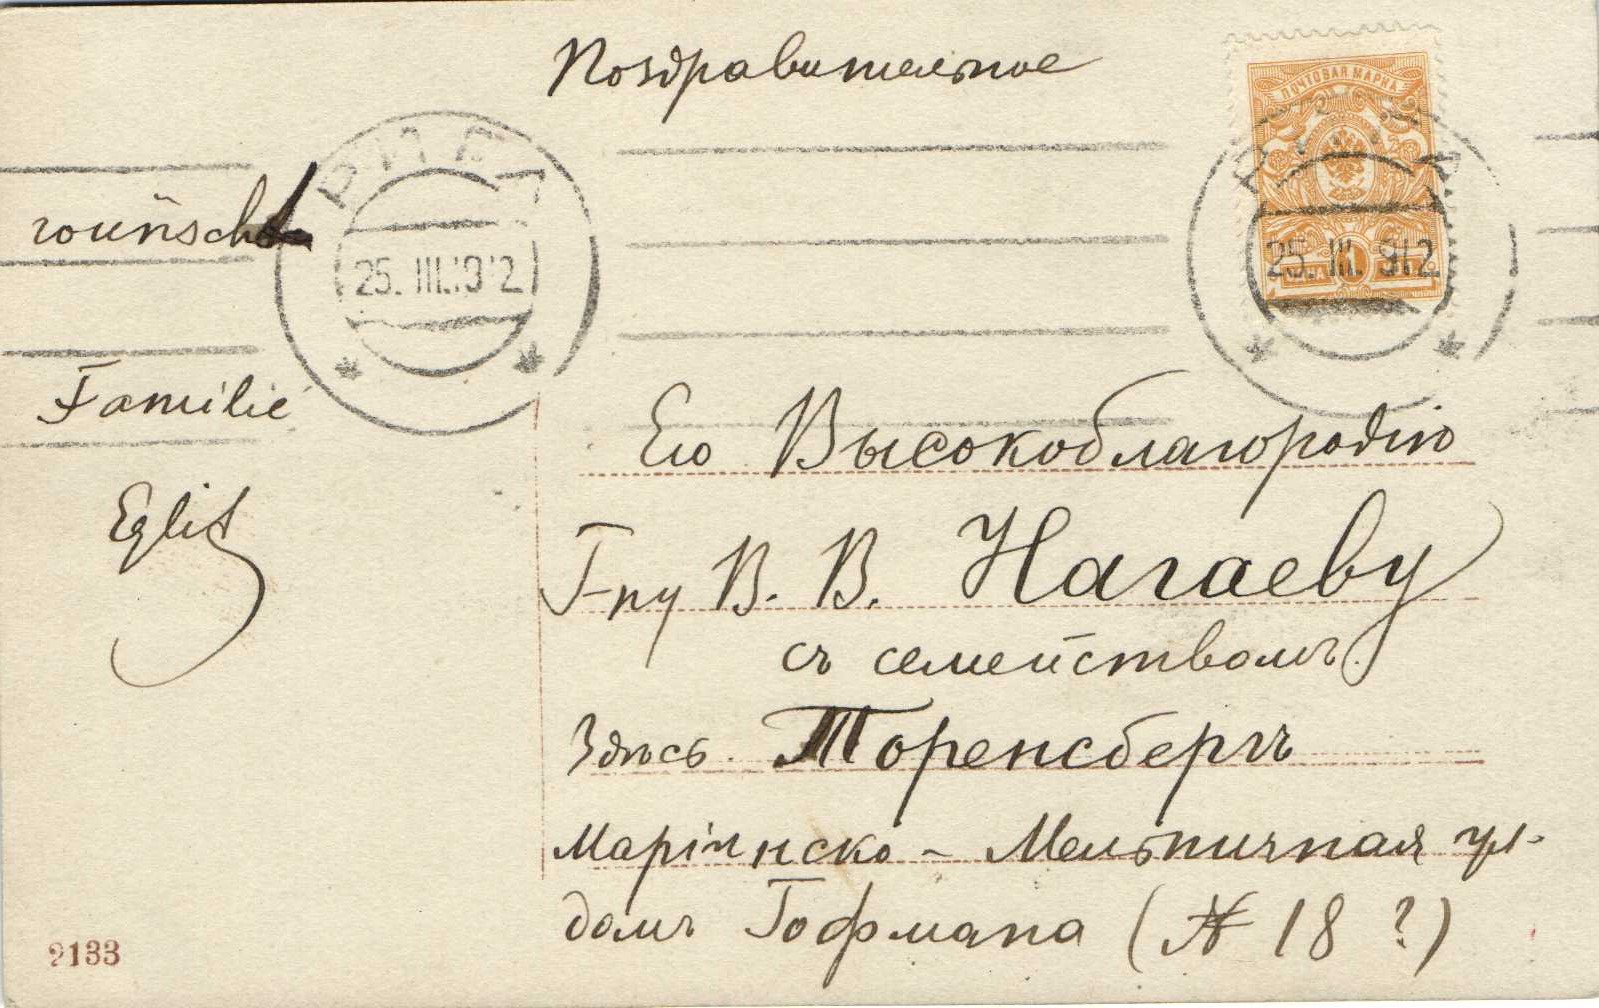 Поздравительное
ПОЧТОВАЯ МАРКА
РИГА
25. III. 912
РИГА
25. III. 912
1
wünscht
Familie
Eglit
Его Высокоблагородію
Г-ну В. В. Нагаеву
съ семействомъ.
Здѣсь. Торенсбергъ
Маріинско - Мельничная ул.
домъ Гофмана (№ 18 ?)
2133